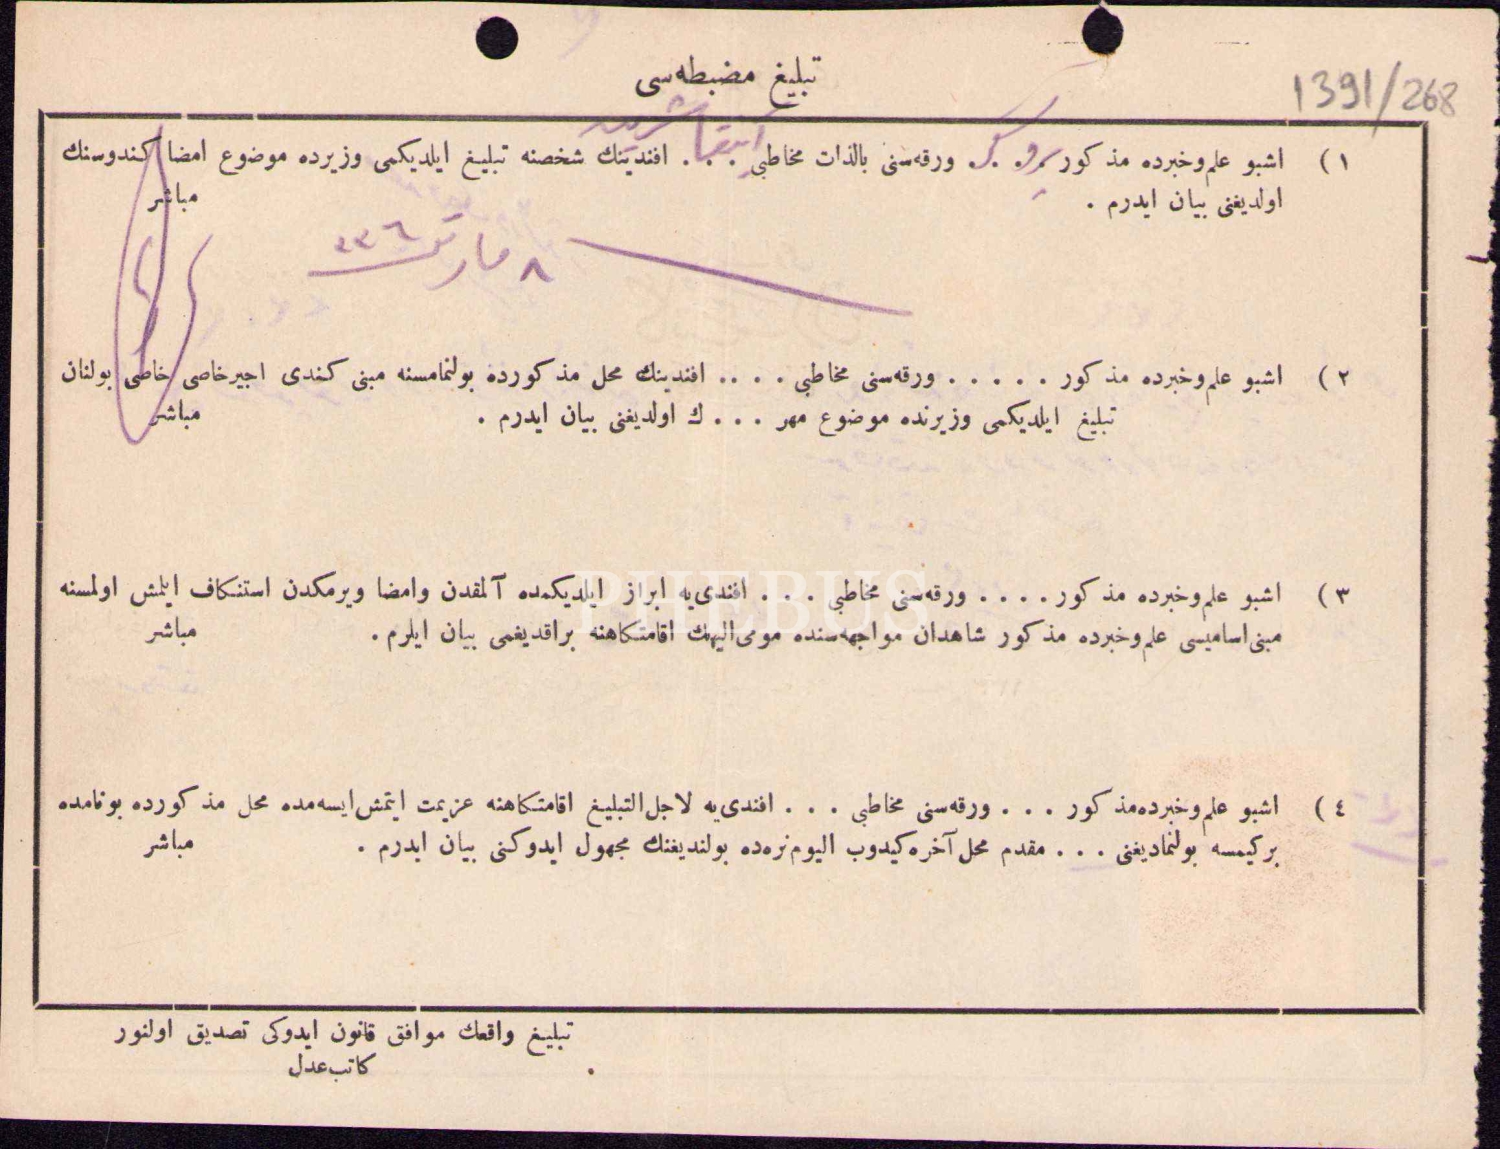 1391/268
تبليغ مضبطه‌سی
١) اشبو علم وخبرده مذكور . . ورقه‌سنی بالذات مخاطبی . . . افندينك شخصنه تبليغ ايلديكمی وزيرده موضوع امضا كندوسنك
اولديغنی بيان ايدرم .
مباشر
٨ مارت ٣٣٦
٢) اشبو علم وخبرده مذكور . . . . . ورقه‌سنی مخاطبی . . . . افندينك محل مذكورده بولنمامسنه مبنی كندی اجيرخاصی خاصی بولنان
تبليغ ايلديكمی وزيرنده موضوع مهر . . . ك اولديغنی بيان ايدرم .
مباشر
٣) اشبو علم وخبرده مذكور . . . . ورقه‌سنی مخاطبی . . . افندی‌يه ابراز ايلديكمده آلمقدن وامضا ويرمكدن استنكاف ايلمش اولمسنه
مبنی اساميسی علم وخبرده مذكور شاهدان مواجهه‌سنده مومی‌اليهك اقامتكاهنه براقديغمی بيان ايلرم .
مباشر
PHEBUS
٤) اشبو علم وخبرده مذكور . . . ورقه‌سنی مخاطبی . . . افندی‌يه لاجل‌التبليغ اقامتكاهنه عزيمت ايتمش ايسه‌مده محل مذكورده بونامده
بركيمسه بولنماديغنی . . . مقدم محل آخره كيدوب اليوم نره‌ده بولنديغنك مجهول ايدوكنی بيان ايدرم .
مباشر
تبليغ واقعك موافق قانون ايدوكی تصديق اولنور
كاتب عدل .